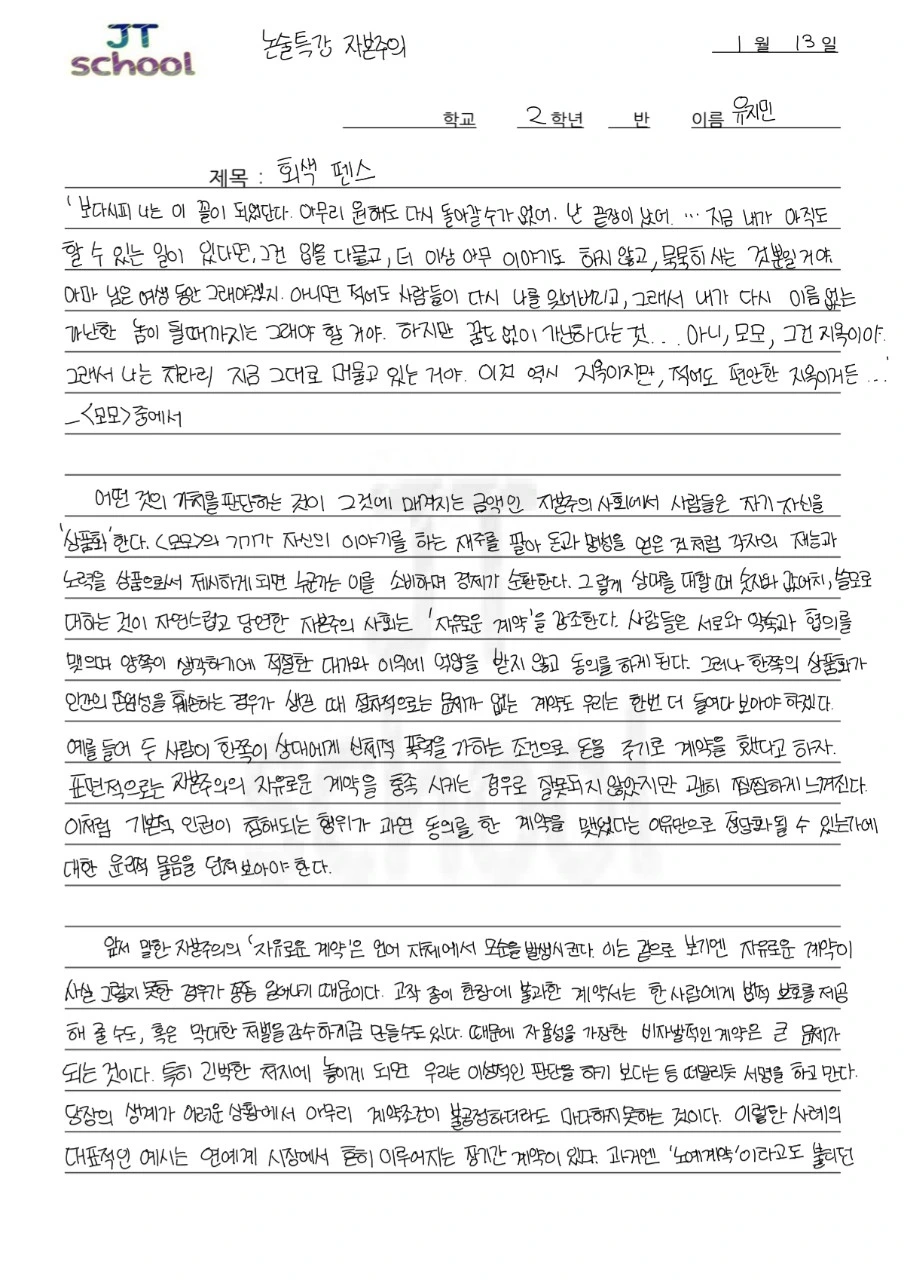 JT school
논술특강 자본주의
1월 13일
학교 2학년 반 이름 유지민
제목 : 회색 펜스
'보다시피 나는 이 꼴이 되었단다. 아무리 원해도 다시 돌아갈 수가 없어. 난 끝장이 났어. … 지금 내가 아직도
할 수 있는 일이 있다면, 그건 입을 다물고, 더 이상 아무 이야기도 하지 않고, 묵묵히 사는 것뿐일거야.
아마 남은 여생 동안 그래야겠지. 아니면 적어도 사람들이 다시 나를 잊어버리고, 그래서 내가 다시 이름 없는
가난한 놈이 될때까지는 그래야 할 거야. 하지만 꿈도 없이 가난하다는 것... 아니, 모모, 그건 지옥이야.
그래서 나는 차라리 지금 그대로 머물고 있는 거야. 이것 역시 지옥이지만, 적어도 편안한 지옥이거든 …'
_<모모>중에서
어떤 것의 가치를 판단하는 것이 그것에 매겨지는 금액인 자본주의 사회에서 사람들은 자기 자신을
'상품화'한다. <모모>의 기기가 자신의 이야기를 하는 재주를 팔아 돈과 명성을 얻은 것처럼 각자의 재능과
노력을 상품으로서 제시하게 되면 누군가는 이를 소비하며 경제가 순환한다. 그렇게 상대를 대할 때 숫자와 값어치, 쓸모로
대하는 것이 자연스럽고 당연한 자본주의 사회는 '자유로운 계약'을 강조한다. 사람들은 서로와 약속과 협의를
맺으며 양쪽이 생각하기에 적절한 대가와 이익에 억압을 받지 않고 동의를 하게 된다. 그러나 한쪽의 상품화가
인간의 존엄성을 훼손하는 경우가 생길 때 절차적으로는 문제가 없는 계약도 우리는 한번 더 들여다 보아야 하겠다.
예를 들어 두 사람이 한쪽이 상대에게 신체적 폭력을 가하는 조건으로 돈을 주기로 계약을 했다고 하자.
표면적으로는 자본주의의 자유로운 계약을 충족 시키는 경우로 잘못되지 않았지만 괜히 찜찜하게 느껴진다.
이처럼 기본적 인권이 침해되는 행위가 과연 동의를 한 계약을 맺었다는 이유만으로 정당화 될 수 있는가에
대한 윤리적 물음을 던져 보아야 한다.
앞서 말한 자본주의의 '자유로운 계약'은 언어 자체에서 모순을 발생시킨다. 이는 겉으로 보기엔 자유로운 계약이
사실 그렇지 못한 경우가 종종 일어나기 때문이다. 고작 종이 한장에 불과한 계약서는 한 사람에게 법적 보호를 제공
해 줄 수도, 혹은 막대한 처벌을 감수하게끔 만들수도 있다. 때문에 자율성을 가장한 비자발적인 계약은 큰 문제가
되는 것이다. 특히 긴박한 처지에 놓이게 되면 우리는 이성적인 판단을 하기 보다는 등 떠밀리듯 서명을 하고 만다.
당장의 생계가 어려운 상황에서 아무리 계약조건이 불공정하더라도 마다하지 못하는 것이다. 이렇한 사례의
대표적인 예시는 연예계 시장에서 흔히 이루어지는 장기간 계약이 있다. 과거엔 '노예계약'이라고도 불리던